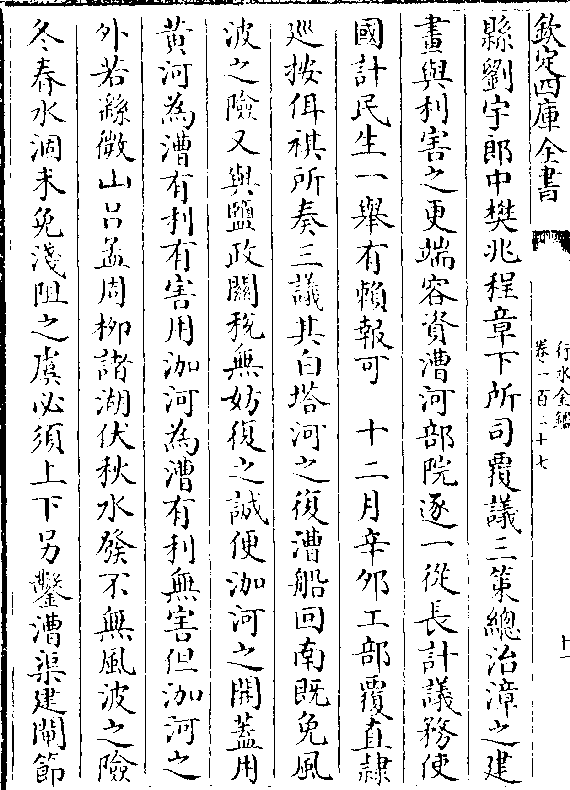 欽定四庫全書
行水金鑑
卷一百二十七
十一
縣劉宇郎中樊兆程章下所司覆議三策總治漳之建
畫與利害之更端容資漕河部院逐一從長計議務使
國計民生一舉有賴報可　十二月辛夘工部覆直隷
廵按佴祺所奏三議其白塔河之復漕船回南既免風
波之險又與鹽政關税無妨復之誠便泇河之開葢用
黄河為漕有利有害用泇河為漕有利無害但泇河之
外若㵎微山吕孟周柳諸湖伏秋水發不無風波之險
冬春水涸未免淺阻之虞必須上下另鑿漕渠建閘節